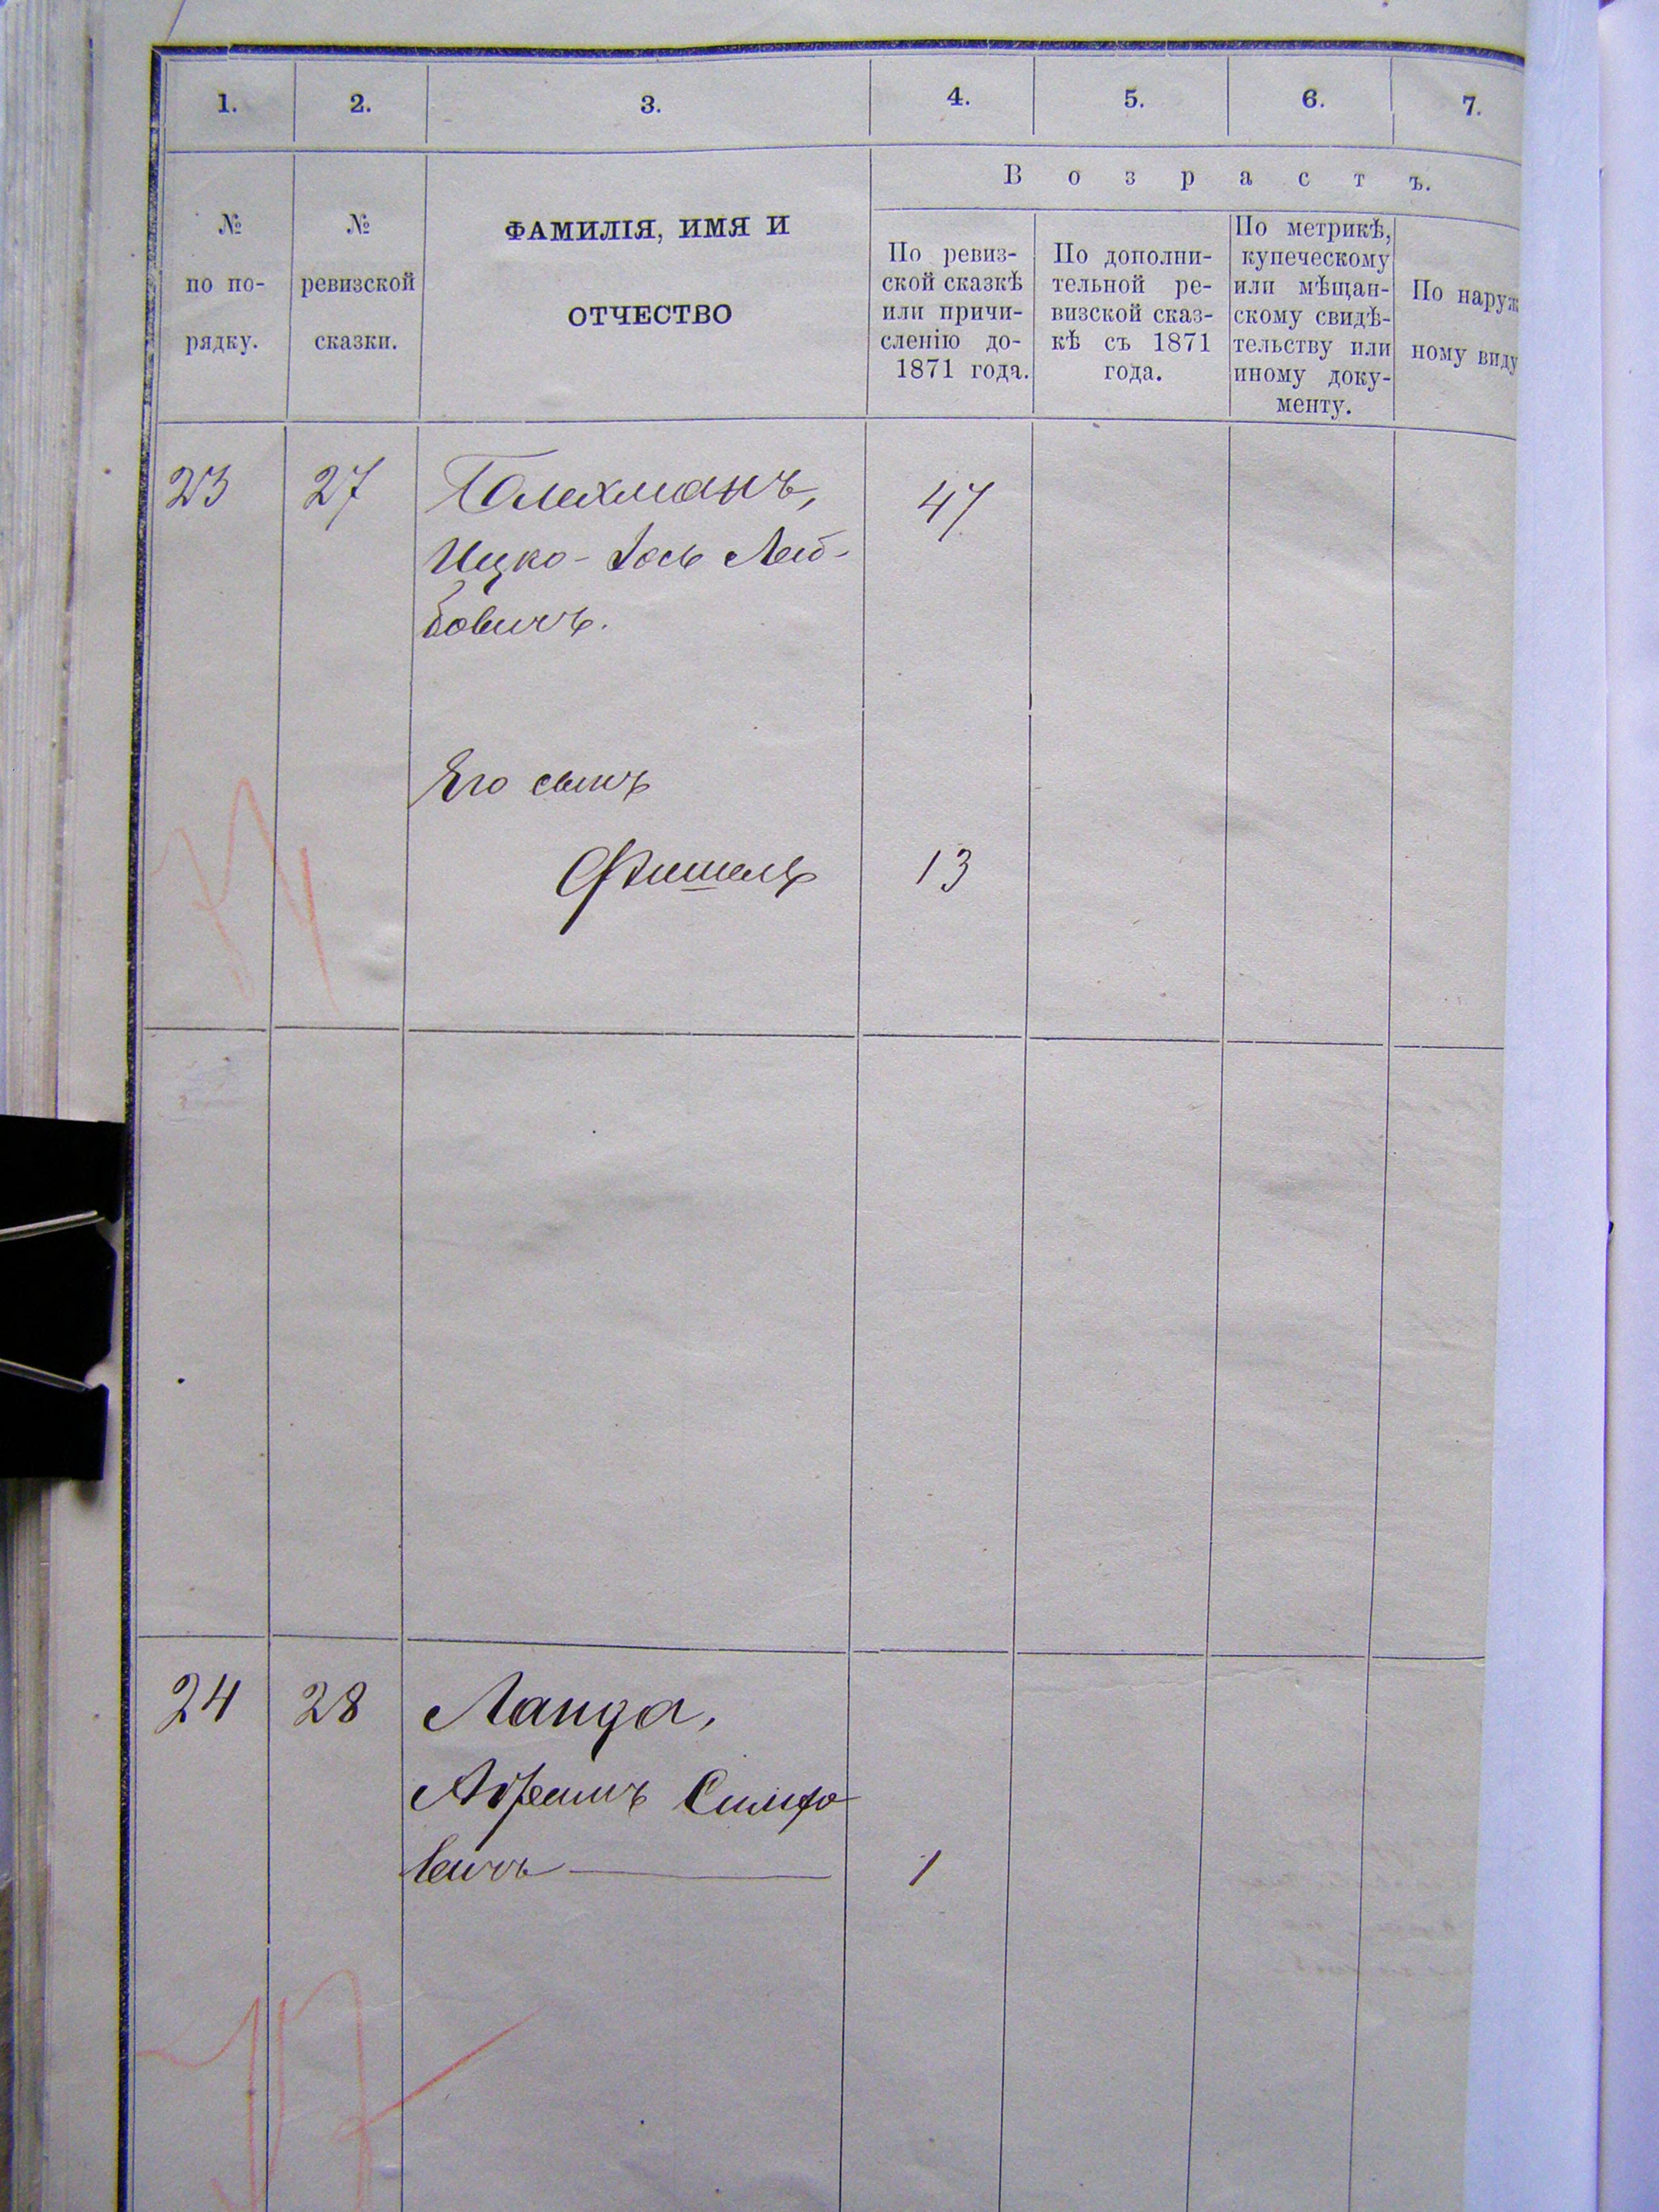 1. 2. 3. 4. 5. 6. 7.
№ по по-рядку.
№ ревизской сказки.
ФАМИЛІЯ, ИМЯ И
ОТЧЕСТВО
Возрастъ.
По ревиз-
ской сказкѣ
или причи-
сленію до-
1871 года.
По дополни-
тельной ре-
визской сказ-
кѣ съ 1871
года.
По метрикѣ,
купеческому
или мѣщан-
скому свидѣ-
тельству или
иному доку-
менту.
По наруж
ному виду
23 27 Голехманъ, 47
Ицко-Іось Лей-
бовичъ.
Его сынъ
Фишель 13
24 28 Ланда,
Абрамъ Симхо
вичъ 1